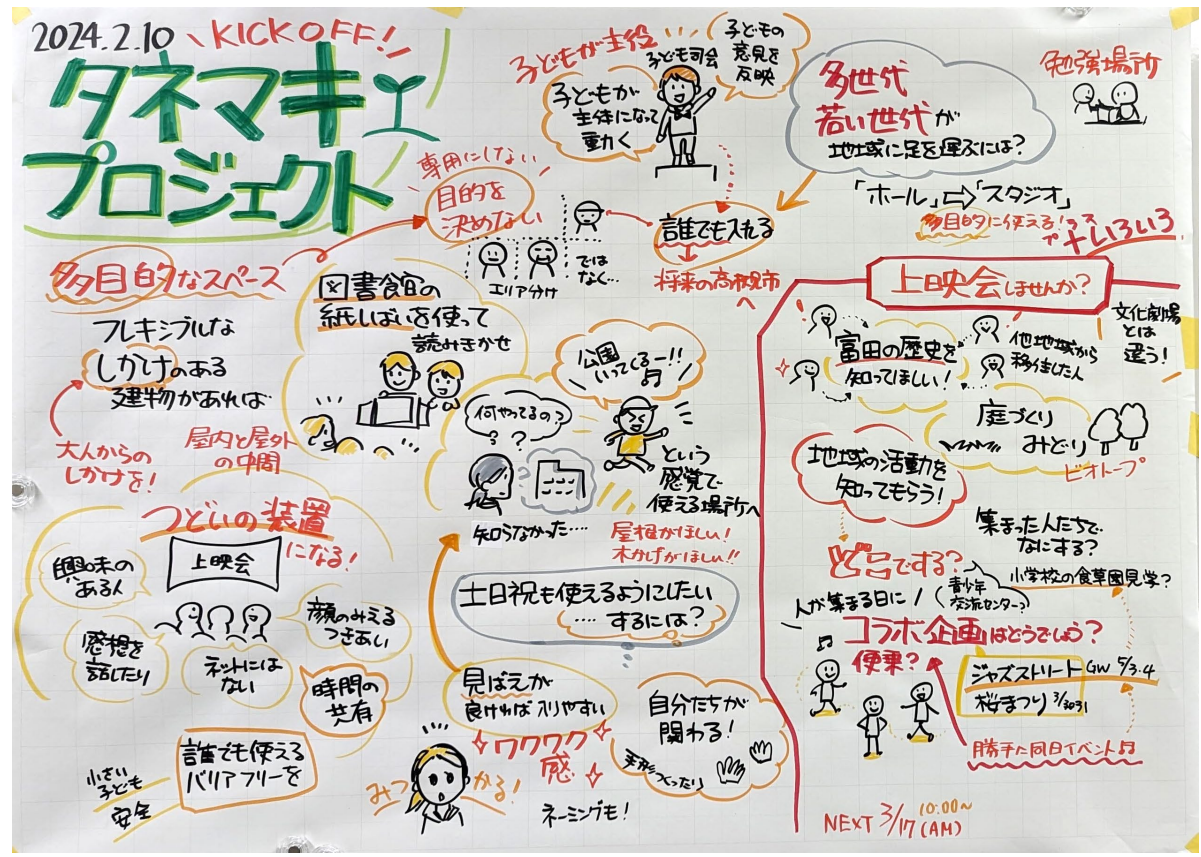 2024.2.10
KICKOFF!
タネマキ
プロジェクト
子どもが主役
子ども司会
子どもの
意見を
反映
子どもが
主体になって
動く
多世代
若い世代が
地域に足を運ぶには?
勉強場所
「ホール」⇨「スタジオ」
多目的に使える!
プラス
+いろいろ
専用にしない
目的を
決めない
エリア分け
ではなく…
誰でも入れる
将来の高槻市へ
多目的なスペース
フレキシブルな
しかけのある
建物があれば
大人からの
しかけを!
屋内と屋外
の中間
図書館の
紙しばいを使って
読みきかせ
公園
いってくるー!!
何やってるの?
??
という
感覚で
使える場所へ
知らなかった….
屋根がほしい!
木かげがほしい!!
つどいの装置
になる!
上映会
興味の
ある人
感想を
話したり
ネットには
ない
顔のみえる
つきあい
時間の
共有
誰でも使える
バリアフリーを
小さい
子ども
安全
土日祝も使えるようにしたい
….するには?
見ばえが
良ければ入りやすい
ワクワク
感
みつかる!
ネーミングも!
自分たちが
関わる!
つくったり
上映会しませんか?
文化劇場
とは
違う!
富田の歴史を
知ってほしい!
他地域から
移住した人
庭づくり
みどり
ビオトープ
地域の活動を
知ってもらう!
集まった人たちで
なにする?
どこでする?
小学校の食草園見学?
青少年
交流センター?
人が集まる日に!
コラボ企画はどうでしょう?
便乗?
ジャズストリート GW 5/3.4
桜まつり 3/30.31
勝手に同日イベント♫
NEXT 3/17 10:00~
(AM)